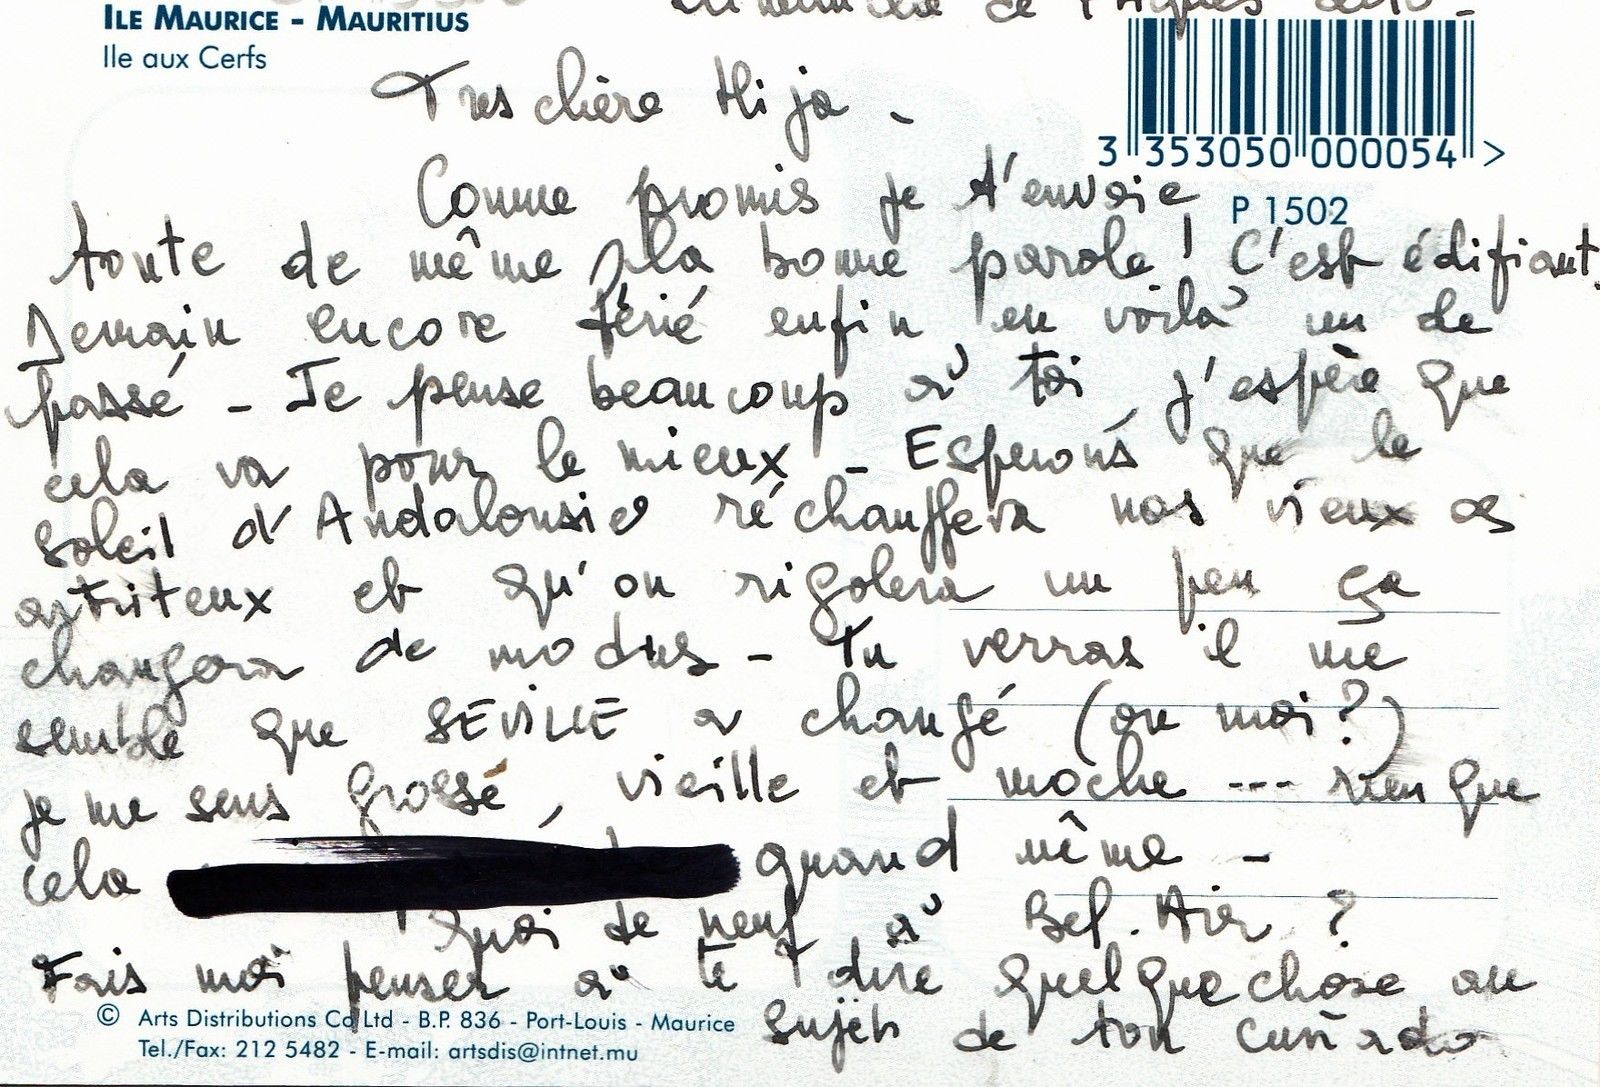 ILE MAURICE - MAURITIUS
Ile aux Cerfs
de Pâques 2010 -
Tres chère Hija -
3 353050 000054 >
P 1502
Comme promis je t'envoie
toute de même la bonne parole ! C'est édifiant.
Demain encore férié enfin en voilà un de
passé - Je pense beaucoup à toi, j'espère que
cela va pour le mieux - Esperons que le
soleil d'Andalousie réchauffera nos vieux os
artriteux et qu'on rigolera un peu ça
changera de modus - Tu verras il me
semble que SEVILLE a changé (ou moi ?)
je me sens grosse, vieille et moche --- rien que
cela quand même -
Quoi de neuf à Bel. Air ?
Fais moi penser à te dire quelque chose au
sujet de ton cuñado
© Arts Distributions Co Ltd - B.P. 836 - Port-Louis - Maurice
Tel./Fax: 212 5482 - E-mail: artsdis@intnet.mu